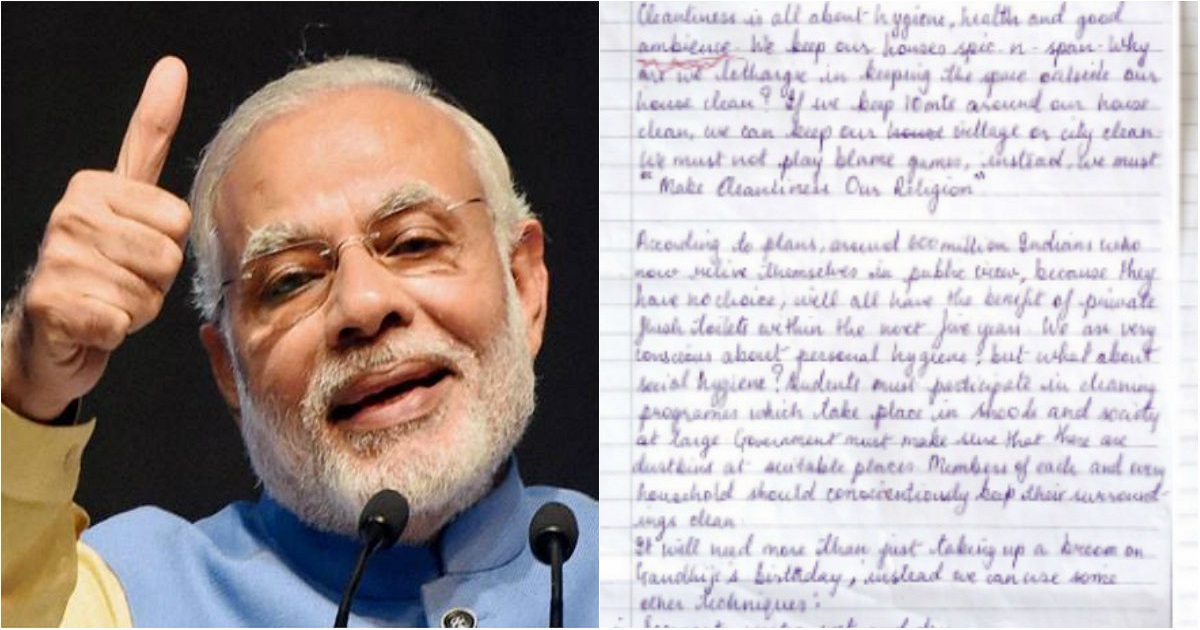 Cleanliness is all about hygiene, health and good
ambience. We keep our houses spic-n-span. Why
are we lethargic in keeping the space outside our
house clean? If we keep 10 mts around our house
clean, we can keep our house village or city clean
We must not play blame games, instead, we must
"Make Cleanliness Our Religion"
According to plans, around 600 million Indians who
now relive themselves in public view, because they
have no choice, will all have the benefit of private
flush toilets within the next five years. We are very
conscious about personal hygiene, but what about
social hygiene? Students must participate in cleaning
programes which take place in shools and society
at large Government must make sure that there are
dustbins at suitable places. Members of each and every
household should conscientiously keep their surround-
ings clean.
It will need more than just taking up a broom on
Gandhiji's birthday, instead we can use some
other techniques: